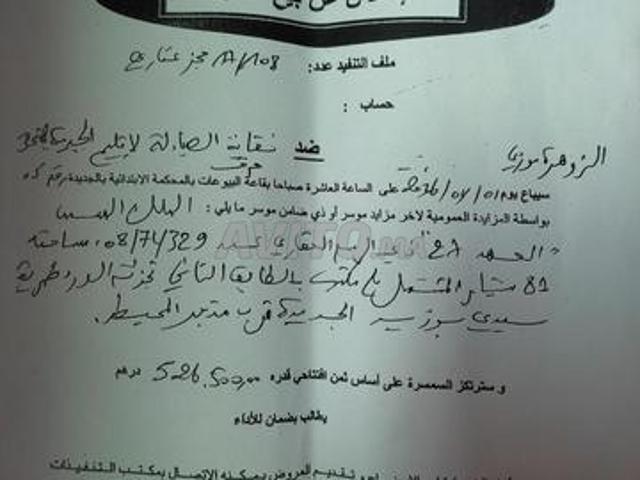 ملف التنفيذ عدد: A/108 حجز عقاري
حساب :
الزوهرة موزي ضد نقابة الصيادلة لإقليم الجديدة
سيباع يوم 01/07/2016 على الساعة العاشرة صباحا بقاعة البيوعات بالمحكمة الابتدائية بالجديدة رقم
بواسطة المزايدة العمومية لاخر مزايد موسر أو ذي ضامن موسر ما يلي : الملك المسمى
ذي الرسم العقاري عدد 08/74329 مساحته
81 متار المشتمل على مكتب بالطابق الثاني تجزئة الورد طريق
سيدي بوزيد الجديدة قرب متجر المحيط.
و سترتكز السمسرة على أساس ثمن افتتاحي قدره 526.500,00 درهم
يطالب بضمان للأداء
تقديم العروض يمكنه الإتصال بمكتب التنفيذات
AVITO.ma